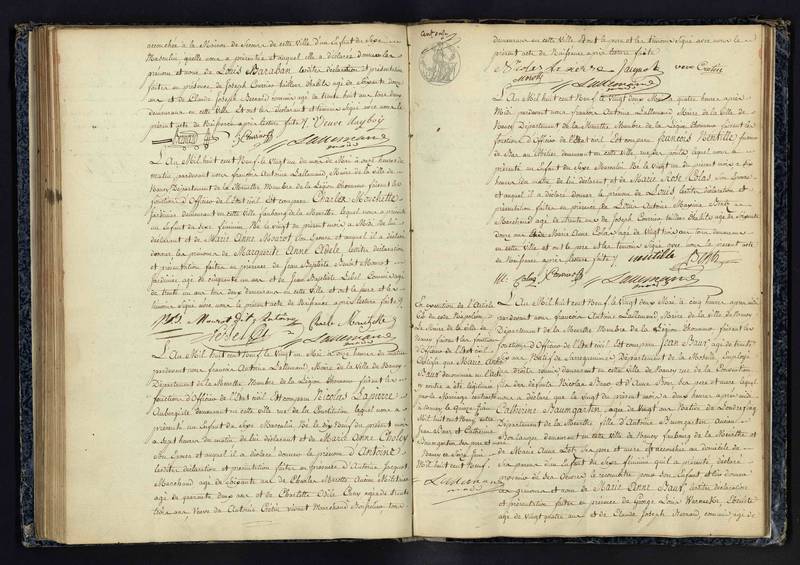 accouchée à la Maison de Secours de cette Ville d'un Enfant du Sexe
Masculin, qu'elle nous a présenté et auquel elle a déclaré donner les
prénom et nom de Louis Baraban lesdites déclaration et présentation
faites en présence de Joseph Couvrier tailleur d'habits agé de Soixante douze
ans et de Claude Joseph Renard commis agé de trente huit ans tous deux
demeurans en cette Ville. Et ont les déclarant et témoins Signé avec nous le
présent acte de Naissance après lecture faite. Veuve
Lallemand
L'An Mil huit cent Neuf le Vingt un du mois de Mai à onze heures du
matin, pardevant nous françois Antoine Lallemand Maire de la Ville de
Nancy Département de la Meurthe Membre de la Légion d'honneur faisant les
fonctions d'Officier de l'Etat civil. Est comparu Charles Mouchette
Jardinier demeurant en cette Ville faubourg de la Meurthe, lequel nous a présenté
un Enfant du Sexe féminin, Né le Vingt du présent mois à Midi de lui
déclarant et de Marie Anne Mourot Son Epouse et auquel il a déclaré
donner les prénoms de Marguerite Anne Adèle lesdites déclaration
et présentation faites en présence de Jean Baptiste Benoit Mourot
Jardinier agé de cinquante un ans et de Jean Baptiste Lebel Commis agé
de trente un ans tous deux demeurans en cette Ville et ont le père et les
témoins Signé avec nous le présent acte de Naissance après lecture faite.
Mourot dit Antoine
Lallemand
L'An Mil huit cent Neuf le Vingt un Mai Onze heures du matin
pardevant nous francois Antoine Lallemand Maire de la Ville de Nancy
Département de la Meurthe Membre de la Légion d'honneur faisant les
fonctions d'Officier de l'Etat civil. Est comparu Nicolas Lapierre
Aubergiste demeurant en cette Ville rue de la Constitution lequel nous a
présenté un Enfant du Sexe Masculin Né le dix Neuf du présent mois
à Sept heures du matin de lui déclarant et de Marie Anne Choley
Son Epouse et auquel il a déclaré donner le prénom d'Antoine
lesdites déclaration et présentation faites en présence d'Antoine Jacquot
Marchand agé de Soixante ans de Charles Mariotte Ancien Militaire
agé de quarante deux ans et de Charlotte Odile Cuny agée de trente
trois ans Veuve de Antoine Cretin vivant Marchand Parfumeur tous
demeurans en cette Ville. Et ont le père et les témoins Signé avec nous le
présent acte de Naissance après lecture faite.
Nicolas Lapierre Jacquot veuve Cretin
Mariotte Lallemand
L'An Mil huit cent Neuf le Vingt deux Mai quatre heures après
Midi pardevant nous francois Antoine Lallemand Maire de la Ville de
Nancy Département de la Meurthe Membre de la Légion d'honneur faisant les
fonctions d'Officier de l'Etat civil. Est comparu françois Mentille
demeurant en cette Ville lequel nous a
présenté un Enfant du Sexe Masculin Né le Vingt un du présent mois à Six
heures du matin de lui déclarant et de Marie Rose Colas Son Epouse
et auquel il a déclaré donner le prénom de Louis lesdites déclaration et
présentation faites en présence de Louis Antoine
Marchand agé de trente ans de Joseph Couvrier tailleur d'habits agé de Soixante
douze ans et de Marie Anne Colas agée de Vingt trois ans tous demeurans
en cette Ville et ont le père et les témoins Signé avec nous le présent acte
de Naissance après lecture faite. mentille
Lallemand
En exécution de l'Article
Nous Maire de la Ville de
Nancy faisant les fonctions
d'Officier de l'Etat civil
que Marie Anne
Baur dénommée en l'acte
ci contre a été légitimée
par le Mariage contracté
à Nancy le Quinze Juin
Mil huit cent Neuf entre
Jean Baur et Catherine
Baumgarten Ses père et mère
Nancy ce Seize Juin
Mil huit cent Neuf.
Lallemand
L'An Mil huit cent Neuf le Vingt deux Mai à cinq heures après midi
pardevant nous francois Antoine Lallemand Maire de la Ville de Nancy
Département de la Meurthe Membre de la Légion d'honneur faisant les
fonctions d'Officier de l'Etat civil. Est comparu Jean Baur agé de trente
ans Natif de Sarreguemines Département de la Moselle, Employé
demeurant en cette Ville de Nancy rue de la Constitution
fils des défunts Nicolas Baur et d'Anne Ses père et mère lequel
nous a déclaré que le Vingt du présent mois à deux heures après midi
Catherine Baumgarten agée de Vingt ans Native de
Département de la Meurthe fille d'Antoine Baumgarten
Boulanger demeurant en cette Ville de Nancy faubourg de la Meurthe et
de Marie Anne Ses père et mère est accouchée au domicile de
Ses parens d'un Enfant du Sexe féminin qu'il a présenté, déclaré
provenir de Ses Œuvres et le reconnaître pour Son Enfant et lui donner
les prénoms et nom de Marie Anne Baur lesdites déclaration
et présentation faites en présence de George Louis
agé de Vingt quatre ans et de Claude Joseph Renard, commis agé de